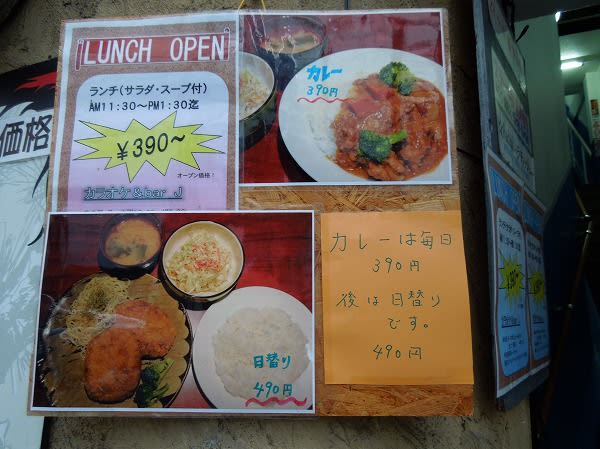 LUNCH OPEN
ランチ(サラダ・スープ付)
AM11:30~PM1:30迄
¥390~
オープン価格!
カラオケ&bar J
カレー
390円
価格
日替り
490円
カレーは毎日
390円
後は日替り
です。
490円